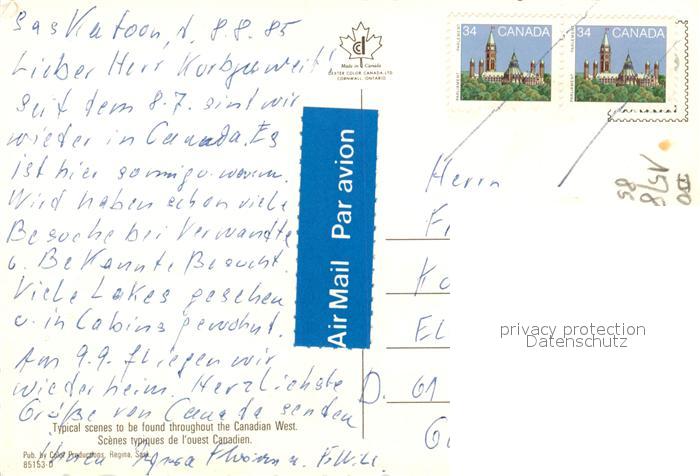 Saskatoon, d. 8.8.85
Lieber Herr Korbjuweit!
Seit dem 8.7. sind wir
wieder in Canada. Es
ist hier sonnig u. warm.
Wird haben schon viele
Besuche bei Verwandte
u. Bekannte Besucht.
Viele Lakes gesehen
u. in Cabins gewohnt.
Am 9.9. fliegen wir
wieder heim. Herzlichste
Grüße von Canada senden
Ihnen
Typical scenes to be found throughout the Canadian West.
Scènes typiques de l'ouest Canadien.
Pub. by Color Productions, Regina, Sask.
85153-D
Made in Canada
DEXTER COLOR CANADA LTD
CORNWALL, ONTARIO
Air Mail Par avion
34 CANADA
PARLIAMENT PARLEMENT
34 CANADA
PARLIAMENT PARLEMENT
15/8
85
Herrn
F
Ko
El
D. 61
G
privacy protection
Datenschutz